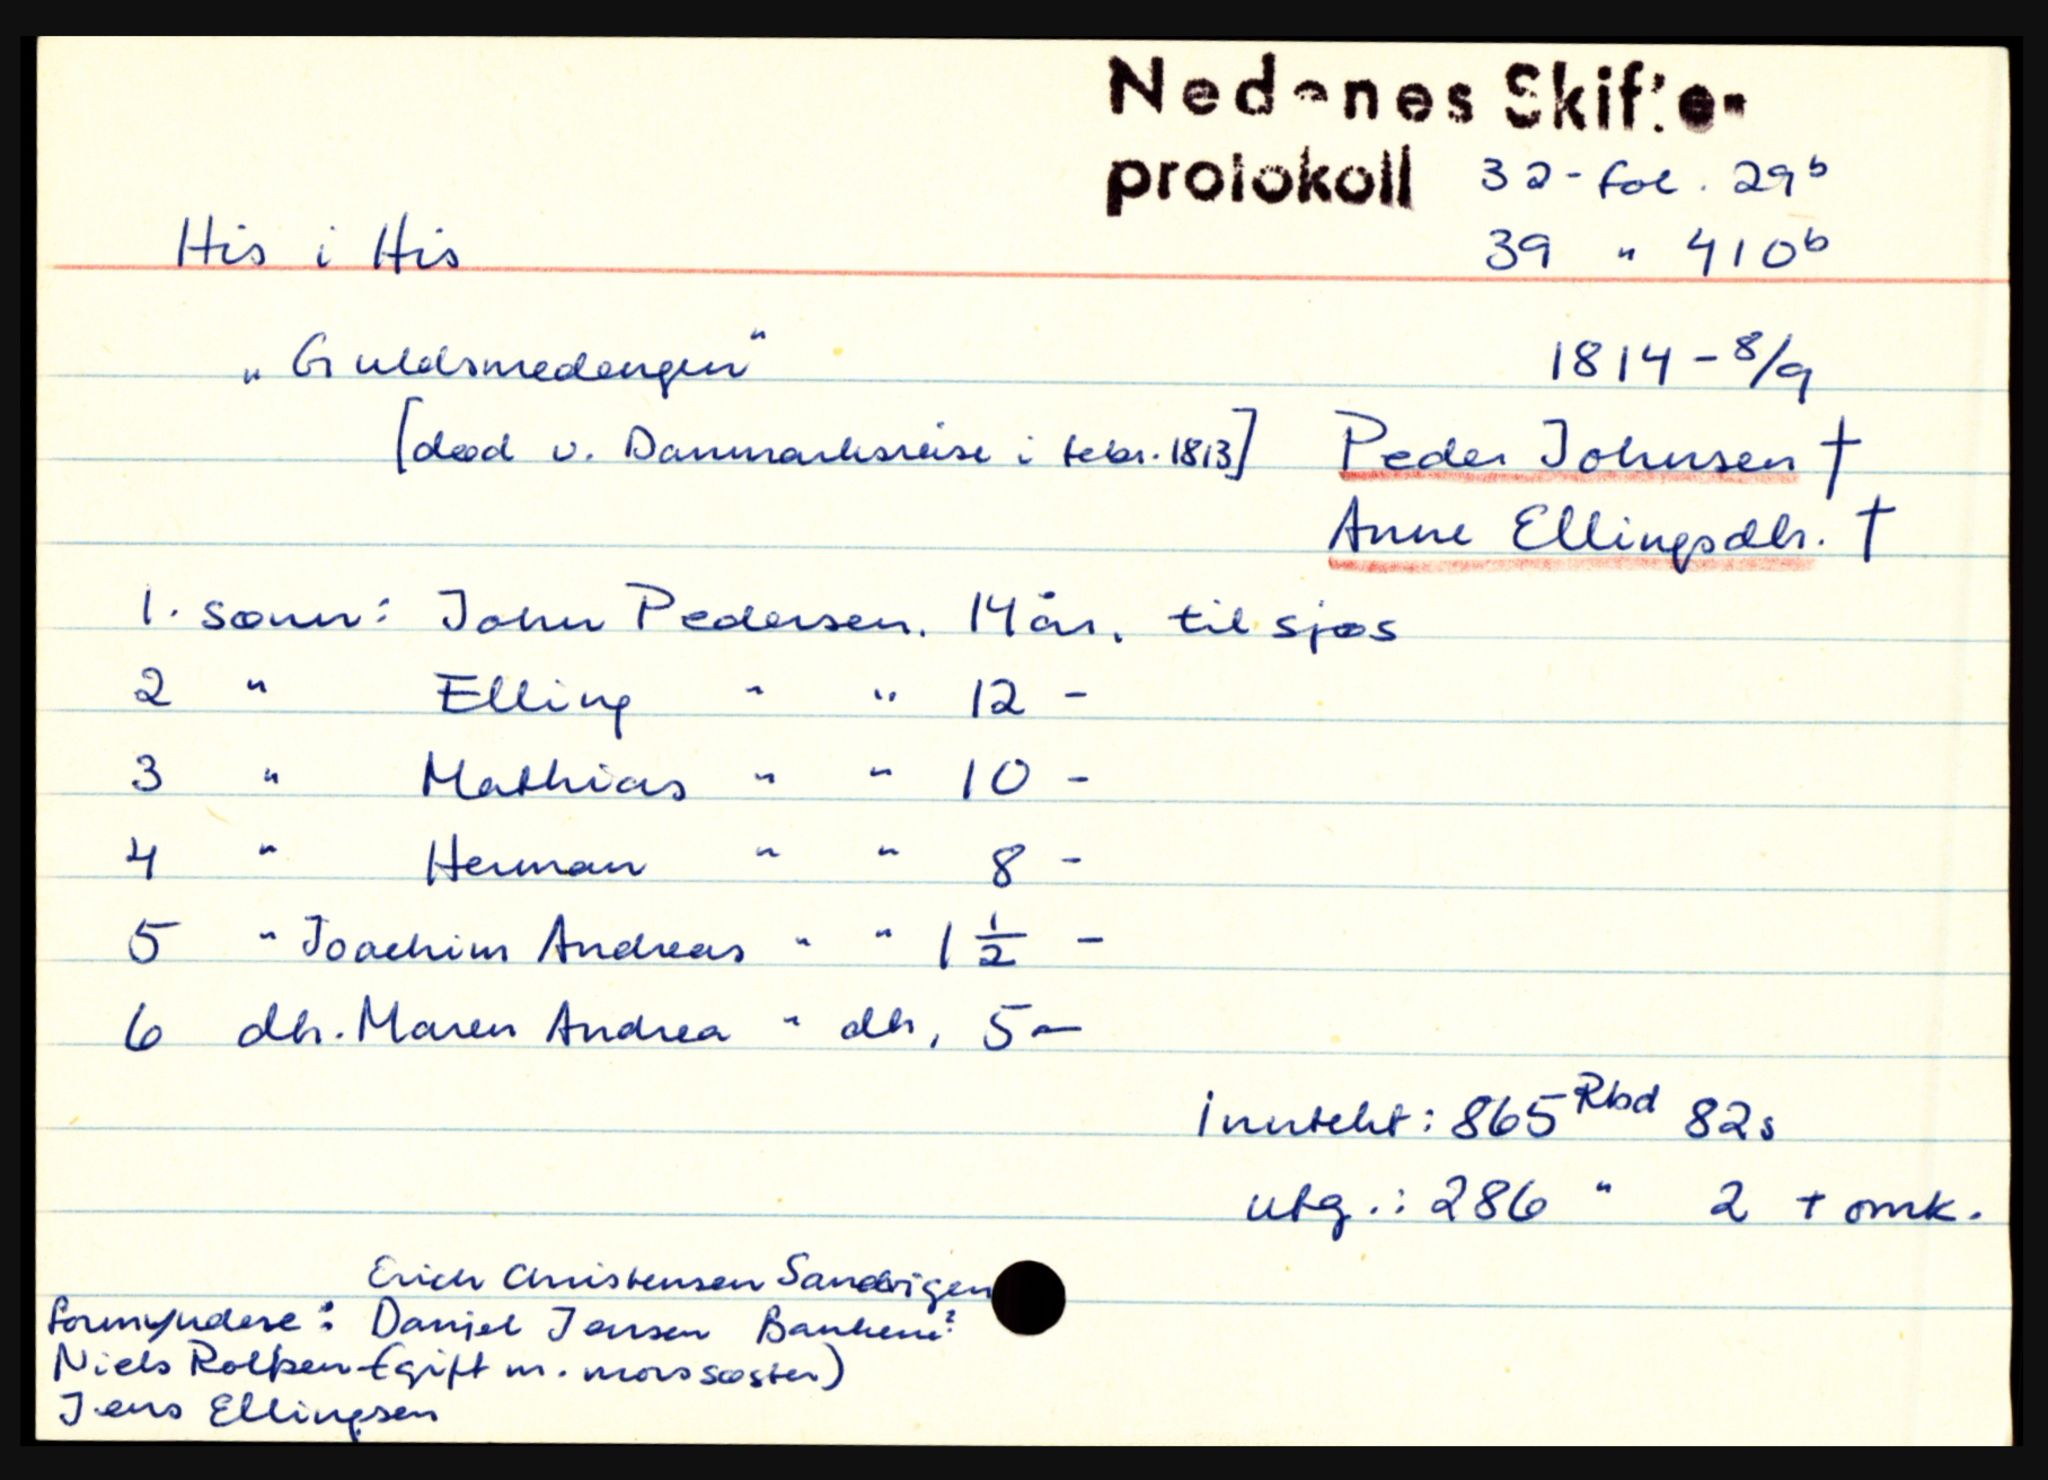 Nedenes Skifte-
protokoll 32 - fol. 29b
39 " 410b
His i His
"Guldsmedengen" 1814 - 8/9
[død v. Danmarksreise i febr. 1813] Peder Johnsen †
Anne Ellingsdtr. †
1. sønn: John Pedersen. 14 år. til sjøs
2 " Elling " " 12 -
3 " Mathias " " 10 -
4 " Herman " " 8 -
5 " Joachim Andreas " " 1 1/2 -
6 dtr. Maren Andrea " dtr. 5 -
inntekt: 865 Rbd 82s
utg.: 286 " 2 + omk.
Erich Christensen Sandvigen
formyndere: Daniel Jensen
Niels Rolfsen (gift m. mors søster)
Jens Ellingsen